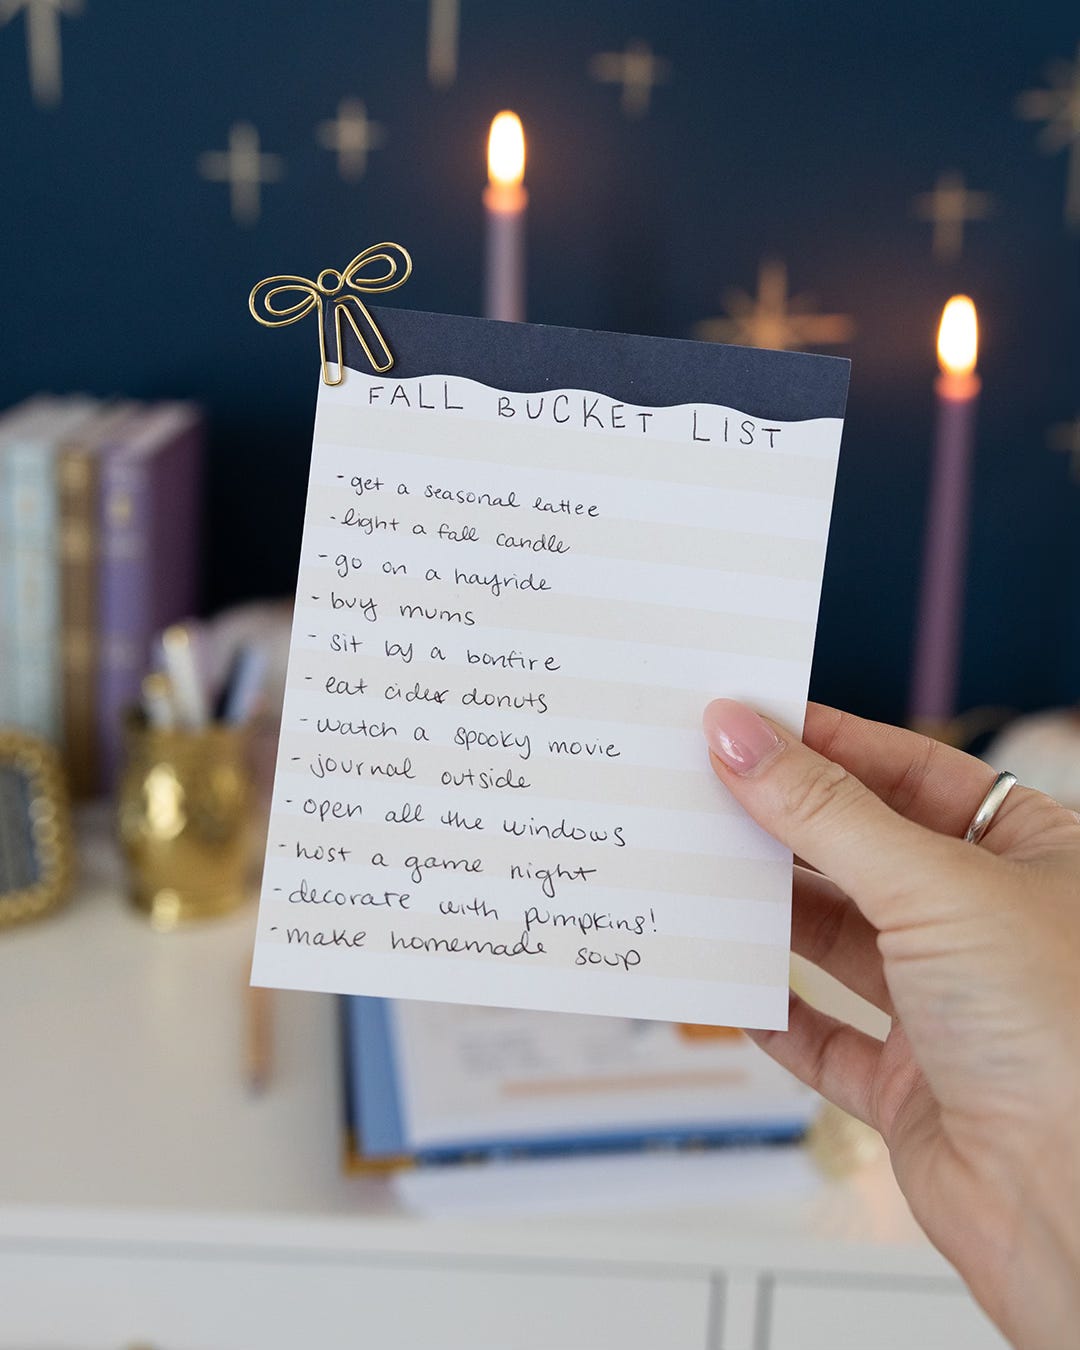 FALL BUCKET LIST
- get a seasonal lattee
- light a fall candle
- go on a hayride
- buy mums
- sit by a bonfire
- eat cider donuts
- watch a spooky movie
- journal outside
- open all the windows
- host a game night
- decorate with pumpkins!
- make homemade soup